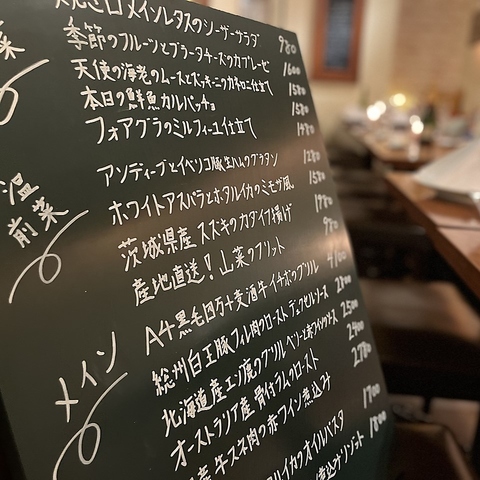 メインレタスのシーザーサラダ 980
菜 季節のフルーツとブラータチーズのカプレーゼ 1600
天使の海老のムースとズッキーニのカネロニ仕立て 1580
本日の鮮魚カルパッチョ 1580
フォアグラのミルフィーユ仕立て 1480
温前菜
アンディーブとイベリコ豚生ハムのグラタン 1280
ホワイトアスパラとホタルイカのミモザ風 1580
茨城県産スズキのカダイフ揚げ 1780
産地直送!山菜のフリット 980
メイン
A4黒毛白万十麦酒牛イチボのグリル 4100
総州白王豚フィレ肉のロースト デュクセルソース 2800
北海道産エゾ鹿のグリル ベリーと赤ワインソース 2500
オーストラリア産 骨付ラムのロースト 2400
産牛スネ肉の赤ワイン煮込み 2780
イカのオイルパスタ 1700
煮込みリゾット 1800